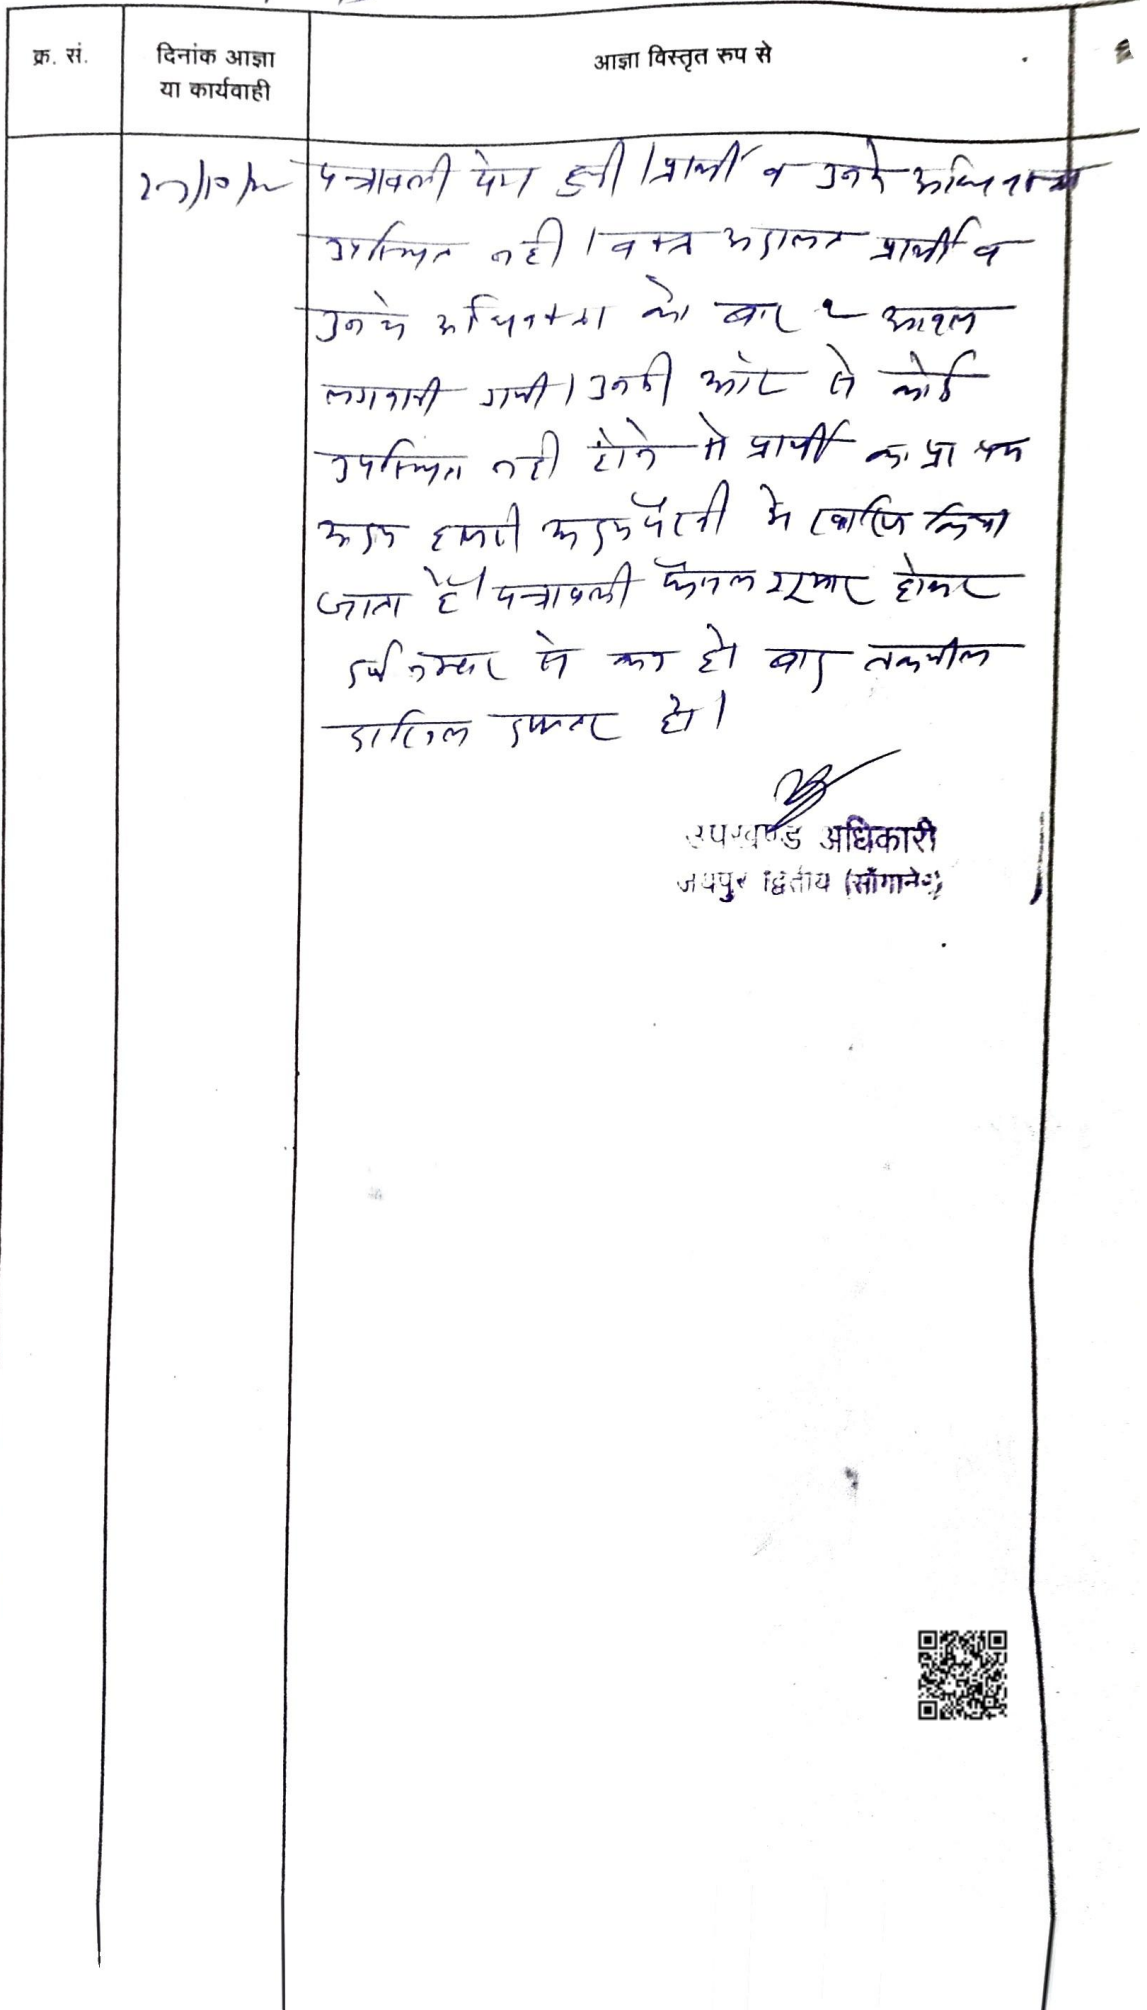 क्र. सं.
दिनांक आज्ञा
या कार्यवाही
आज्ञा विस्तृत रुप से
पत्रावली पेश हुयी । प्रार्थी व उनके अधिवक्ता
उपस्थित नही । वक्त अदालत प्रार्थी व
उनके अधिवक्ता को बार २ आवाज
लगवायी गयी । उनकी ओर से कोई
उपस्थित नही होने से प्रार्थी का प्रा पत्र
अदम हाजरी अदम पैरवी मे खारिज किया
जाता है । पत्रावली फैसल शुमार होकर
दर्ज नम्बर से कम हो बाद तकमील
दाखिल दफ्तर हो ।
उपखण्ड अधिकारी
जयपुर द्वितीय (साँगानेर)